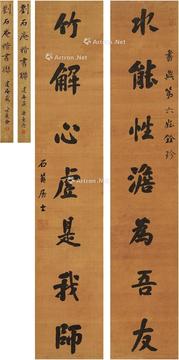 水能性澹為吾友
書與第六姪銓珍
竹解心虛是我師
石菴居士
劉石庵楷書聯
劉石庵楷書聯